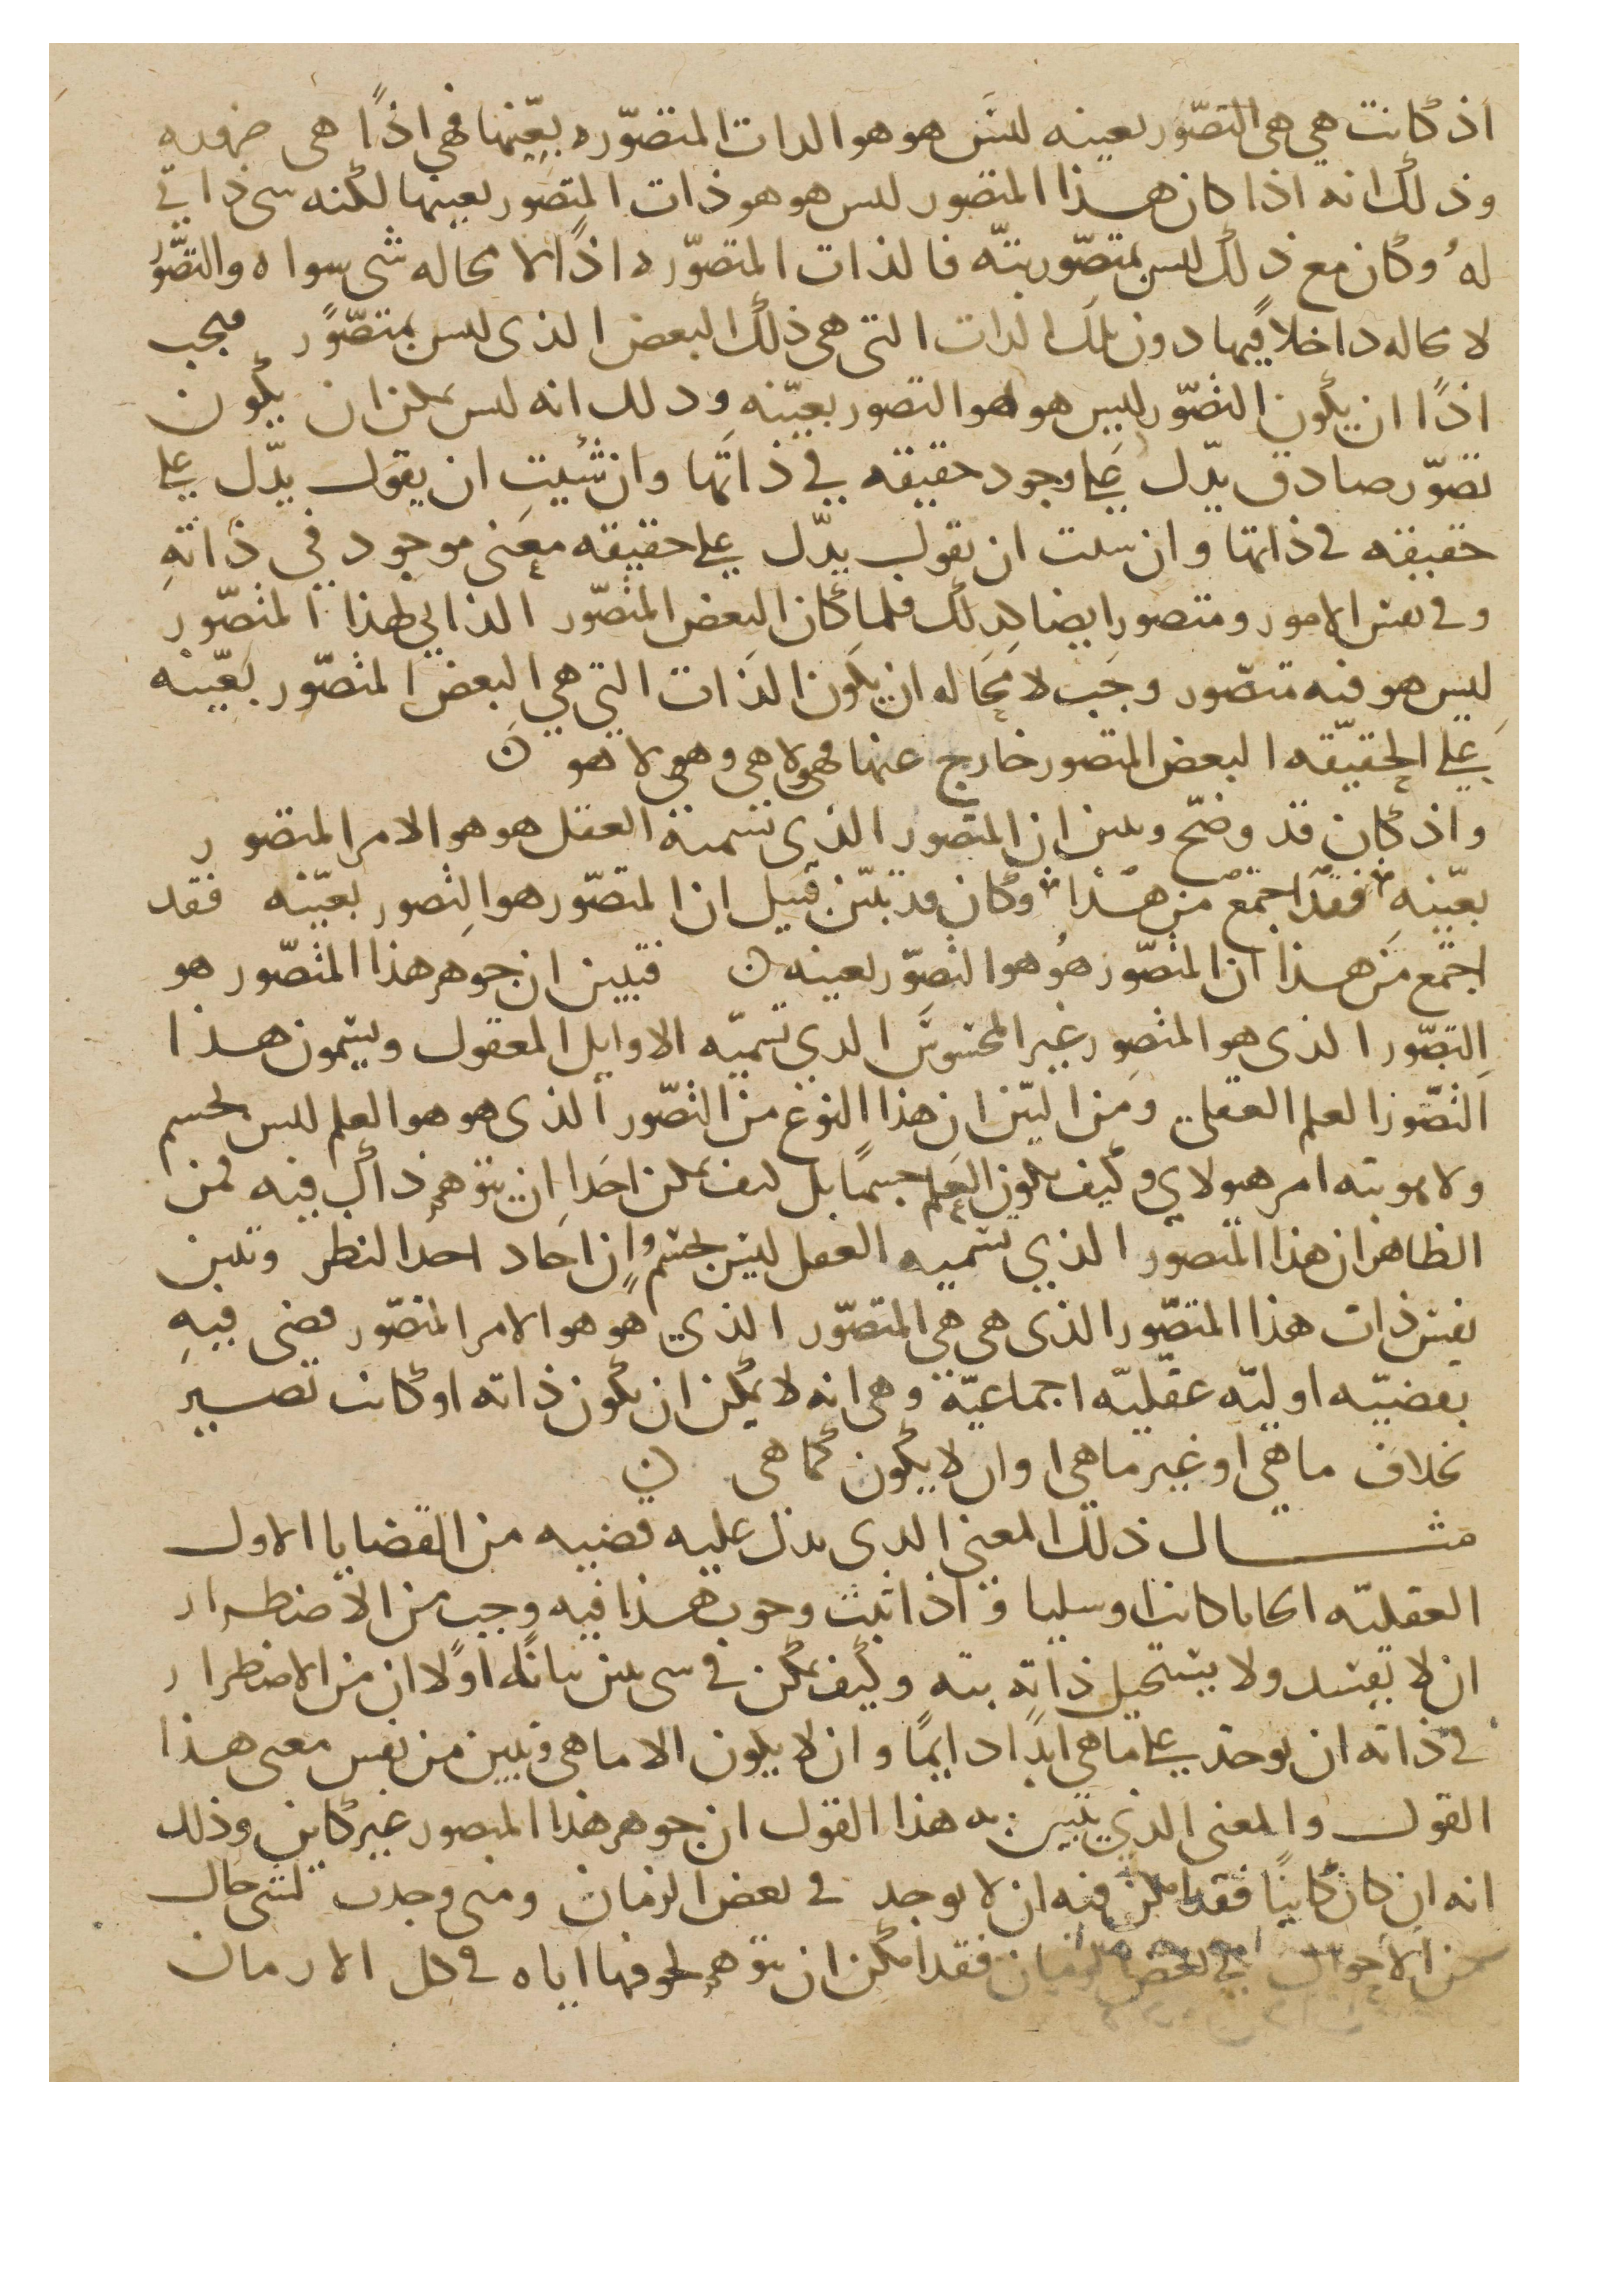 اذ كانت هي هي التصّور بعينه ليس هو هو الذات المتصوّره بعينها فهي اذًا هى
وذلك انه اذا كان هذا المتصور ليس هو هو ذات المتصور بعينها لكنه شى ذاتي
لهُ وكان مع ذلك ليس بمتصّور بتّه فالذات المتصوّره اذًا لا محاله شى سواه والتصّور
لا محاله داخلا فيها دون تلك الذات التى هى ذلك البعض الذى ليس بمتصّور فيجب
اذًا ان يكون التصّور ليس هو هو التصور بعيّنه وذلك انه ليس يمكن ان يكون
تصوّر صادق يدّل على وجود حقيقه في ذاتها وان شيت ان يقول يدّل على
حقيقه في ذاتها وان شيت ان تقول يدّل على حقيقه معنى موجود في ذاته
وفى نفس الامور ومتصور ايضا كذلك فلما كان البعض المتصّور الذاتي لهذا المتصّور
ليس هو فيه متصّور وجب لا محاله ان يكون الذات التي هي البعض المتصّور بعيّنه
على الحقيّقه البعض المتصور خارج عنها فهو لا هى وهى لا هو ن
واذ كان قد وضح وتبين ان المتصور الذى نسميه العقل هو هو الامر المتصور
بعيّنه فقد اجتمع من هذا وكان قد تبيّن قبيل ان المتصّور هو التصور بعيّنه فقد
اجتمع من هذا ان المتصّور هُو هو التصّور بعينه ن فتبين ان جوهر هذا المتصّور هو
التصّور الذى هو المتصور غير المحسوس الذي تسميّه الاوايل المعقول ويسمون هذا
التصّور العلم العقلى ومن البيّن ان هذا النوع من التصّور الذى هو هو العلم ليس بجسم
ولا هو بته امر هيولاي وكيف يكون العلم جسمًا بل كيف يمكن احدا ان يتوهم ذاك فيه فمن
الظاهر ان هذا المتصوّر الذي نسميه العقل ليس بجسم وان اجاد احد النظر وتبين
نفس ذات هذا المتصّور الذى هى هى المتصّور الذي هو هو الامر المتصّور قضى فيه
بقضيّه اوليّه عقليّه اجماعيّة وهى انه لا يمكن ان يكون ذاته او كانت تصير
بخلاف ماهي او غير ماهى او ان لا يكون كما هى ن
مثـــال ذلك المعنى الذى يدل عليه قضيه من القضايا الاول
العقليّه ايجابا كانت او سلبا و اذا ثبت وجوب هذا فيه وجب من الاضطرار
ان لا يفسد ولا يستحيل ذاته بته وكيف يمكن في شى بين بيانًا اولًا ان من الاضطرار
في ذاته ان يوجد على ماهى ابدًا دايمًا وان لا يكون الا ماهى وتبين من نفس معنى هذا
القول والمعنى الذي يتبين به هذا القول ان جوهر هذا المتصور غير كاين وذلك
انه ان كان كاينًا فقد امكن فيه ان لا يوجد في بعض الزمان ومتى وجدت لشى حال
من الاحوال في بعض الزمان فقد امكن ان يتوهم لحوقها اياه في كل الازمان